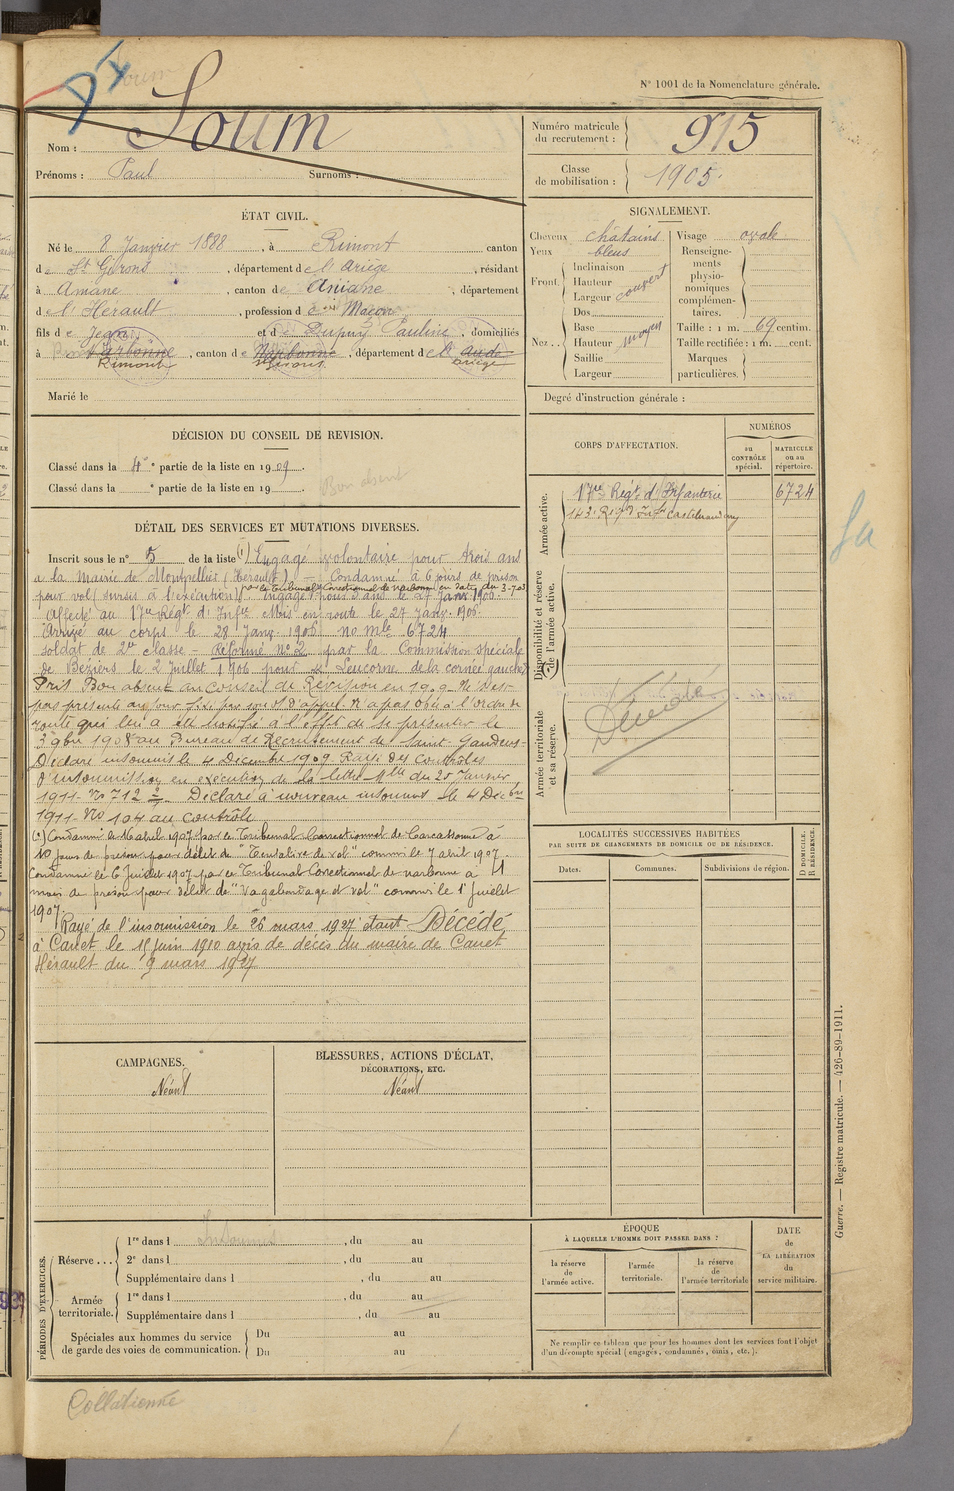 DI
Soum
N° 1001 de la Nomenclature générale.
Nom : Soum
Prénoms : Paul Surnoms :
Numéro matricule du recrutement : 915
Classe de mobilisation : 1905.
ÉTAT CIVIL.
Né le 8 Janvier 1888, à Rimont canton
de St Girons, département de l'Ariège, résidant
à Aniane, canton de Aniane, département
de l'Hérault, profession de Maçon
fils de Jean et de Dupuy Pauline, domiciliés
à Narbonne, canton de Narbonne, département de l'Aude
Rimont St Girons Ariège
Marié le
SIGNALEMENT.
Cheveux châtains
Yeux bleus
Front. Inclinaison
Hauteur
Largeur couvert
Nez... Dos
Base
Hauteur moyen
Saillie
Largeur
Visage ovale
Renseignements physionomiques complémentaires.
Taille : 1 m. 69 centim.
Taille rectifiée : 1 m. cent.
Marques particulières.
Degré d'instruction générale :
DÉCISION DU CONSEIL DE REVISION.
Classé dans la 4e partie de la liste en 1909.
Classé dans la e partie de la liste en 19
Bon absent
CORPS D'AFFECTATION.
NUMÉROS
au CONTRÔLE spécial.
MATRICULE ou au répertoire.
Armée active.
17me Régt d'Infanterie 6724
142e Regt Infie Castelnaudary
Disponibilité et réserve de l'armée active.
Armée territoriale et sa réserve.
Décédé
DÉTAIL DES SERVICES ET MUTATIONS DIVERSES.
Inscrit sous le n° 5 de la liste (1) Engagé volontaire pour trois ans
à la Mairie de Montpellier (Hérault) – Condamné à 6 jours de prison
par le Tribunal Correctionnel de Narbonne en date du 3-7-05
pour vol (sursis à l'exécution) Engagé pour 3 ans le 27 Janv. 1906.
Affecté au 17me Régt d'Infie Mis en route le 27 Janv. 1906.
Arrivé au corps le 28 Janv. 1906 no mle 6724
soldat de 2me classe – Réformé n° 2 par la Commission spéciale
de Béziers le 2 Juillet 1906 pour Leucome de la cornée gauche
Pris Bon absent au Conseil de Révision en 1909 Ne s'est
pas présenté au jour fixé par son d'appel. N'a pas obéi à l'ordre de
route qui lui a été notifié à l'effet de se présenter le
3 9bre 1908 au Bureau de Recrutement de Saint-Gaudens-
Déclaré insoumis le 4 Décembre 1909. Rayé des contrôles
d'insoumission en exécution de la lettre Mlle du 25 Janvier
1911 - No 712 Déclaré à nouveau insoumis le 4 Décbre
1911 - No 104 au contrôle
(1) Condamné le 16 abril 1907 par le Tribunal Correctionnel de Carcassonne à
10 jours de prison pour délit de "Tentative de vol" commis le 7 abril 1907
Condamné le 6 Juillet 1907 par le Tribunal Correctionnel de Narbonne à 4
mois de prison pour délit de "Vagabondage et vol" commis le 1er Juillet
1907.
Rayé de l'insoumission le 26 mars 1927 étant Décédé
à Canet le 15 juin 1910 avis de décès du maire de Canet
Hérault du 9 mars 1927
LOCALITÉS SUCCESSIVES HABITÉES
PAR SUITE DE CHANGEMENTS DE DOMICILE OU DE RÉSIDENCE.
Dates. Communes. Subdivisions de région. D DOMICILE. R RÉSIDENCE.
CAMPAGNES.
Néant
BLESSURES, ACTIONS D'ÉCLAT,
DÉCORATIONS, ETC.
Néant
PÉRIODES D'EXERCICES.
Réserve... 1re dans l Insoumis, du au
2e dans l , du au
Supplémentaire dans l , du au
Armée territoriale. 1re dans l , du au
Supplémentaire dans l , du au
Spéciales aux hommes du service Du au
de garde des voies de communication. Du au
ÉPOQUE
À LAQUELLE L'HOMME DOIT PASSER DANS :
la réserve de l'armée active.
l'armée territoriale.
la réserve de l'armée territoriale
DATE de LA LIBÉRATION du service militaire.
Ne remplir ce tableau que pour les hommes dont les services font l'objet
d'un décompte spécial (engagés, condamnés, omis, etc.).
Guerre. — Registre matricule. — 426-89-1911.
Collationné